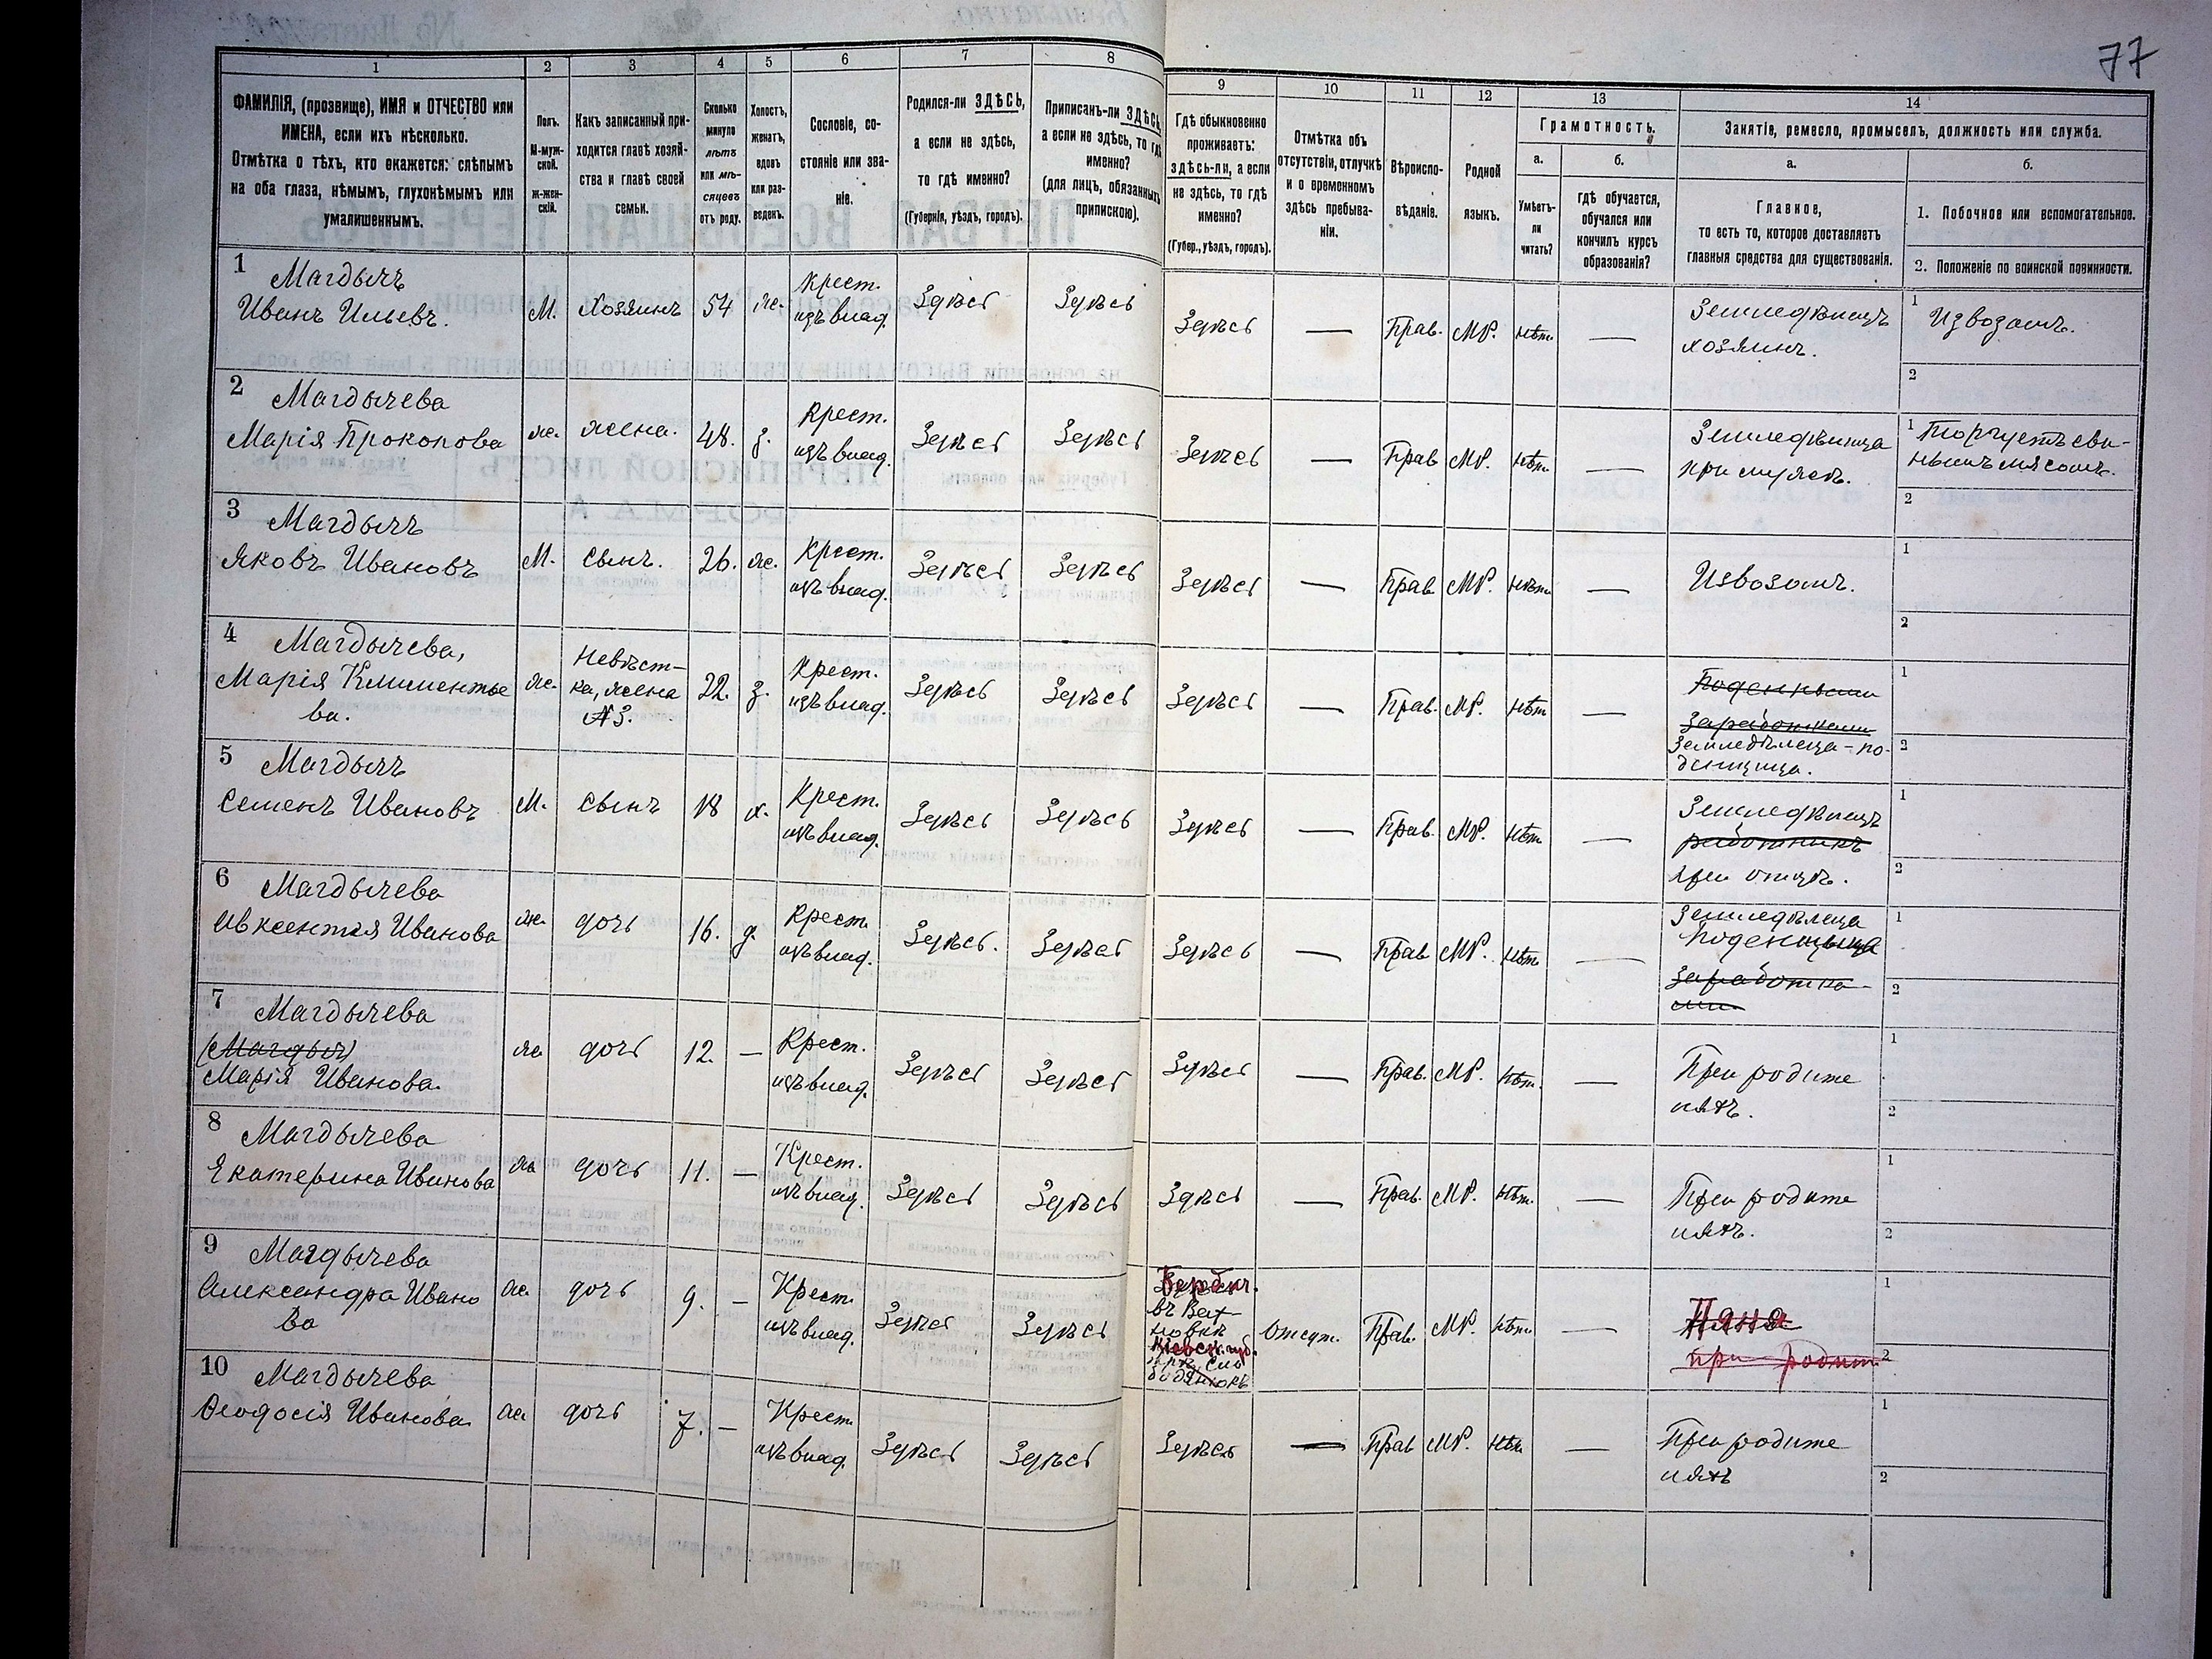 77
1 2 3 4 5 6 7 8 9 10 11 12 13 14
ФАМИЛІЯ, (прозвище), ИМЯ и ОТЧЕСТВО или
ИМЕНА, если ихъ нѣсколько.
Отмѣтка о тѣхъ, кто окажется: слѣпымъ
на оба глаза, нѣмымъ, глухонѣмымъ или
умалишеннымъ.
Полъ.
М-муж-
ской.
Ж-жен-
скій.
Какъ записанный при-
ходится главѣ хозяй-
ства и главѣ своей
семьи.
Сколько
минуло
лѣтъ
или мѣ-
сяцевъ
отъ роду.
Холостъ,
женатъ,
вдовъ
или раз-
веденъ.
Сословіе, со-
стояніе или зва-
ніе.
Родился-ли ЗДѢСЬ,
а если не здѣсь,
то гдѣ именно?
(Губернія, уѣздъ, городъ).
Приписанъ-ли ЗДѢСЬ,
а если не здѣсь, то гдѣ
именно?
(для лицъ, обязанныхъ
припискою).
Гдѣ обыкновенно
проживаетъ:
здѣсь-ли, а если
не здѣсь, то гдѣ
именно?
(Губер., уѣздъ, городъ).
Отмѣтка объ
отсутствіи, отлучкѣ
и о временномъ
здѣсь пребыва-
ніи.
Вѣроиспо-
вѣданіе.
Родной
языкъ.
Грамотность.
а.
Умѣетъ-
ли
читать?
б.
гдѣ обучается,
обучался или
кончилъ курсъ
образованія?
Занятіе, ремесло, промыселъ, должность или служба.
а.
Главное,
то есть то, которое доставляетъ
главныя средства для существованія.
б.
1. Побочное или вспомогательное.
2. Положеніе по воинской повинности.
1 Магдычъ
Иванъ Ильевъ.
М. Хозяинъ 54 ж.
Крест.
изъ влад.
Здѣсь Здѣсь Здѣсь — Прав. МР. нѣт. —
Земледѣлецъ
хозяинъ.
1 Извозомъ.
2
2 Магдычева
Марія Прокопова
ж. жена. 48. з.
Крест.
изъ влад.
Здѣсь Здѣсь Здѣсь — Прав МР. нѣт. —
Земледѣлица
при мужѣ.
1 Торгуетъ сви-
нымъ мясомъ.
2
3 Магдычъ
Яковъ Ивановъ
М. сынъ. 26. ж.
Крест.
изъ влад.
Здѣсь Здѣсь Здѣсь — Прав МР. нѣтъ —
Извозомъ.
1
2
4 Магдычева,
Марія Климентье
ва.
ж.
Невѣст-
ка, жена
№3.
22. з.
Крест.
изъ влад.
Здѣсь Здѣсь Здѣсь — Прав. МР. нѣт —
Поденными
заработками
земледѣлица - по-
денщица.
1
2
5 Магдычъ
Семенъ Ивановъ
М. сынъ 18 х.
Крест.
изъ влад.
Здѣсь Здѣсь Здѣсь — Прав. МР. нѣт —
Земледѣлецъ
работникъ
при отцѣ.
1
2
6 Магдычева
Авксентія Иванова
ж. дочь 16. д.
Крест.
изъ влад.
Здѣсь. Здѣсь Здѣсь — Прав МР. нѣт —
Земледѣлица
Поденщица
заработка-
ми
1
2
7 Магдычева
(Магдыч)
Марія Иванова.
ж дочь 12. —
Крест.
изъ влад.
Здѣсь Здѣсь Здѣсь — Прав. МР. нѣт. —
При родите
ляхъ.
1
2
8 Магдычева
Екатерина Иванова
ж дочь 11. —
Крест.
изъ влад.
Здѣсь Здѣсь Здѣсь — Прав. МР. нѣт. —
При родите
ляхъ.
1
2
9 Магдычева
Александра Ивано
ва
ж. дочь 9. —
Крест.
изъ влад.
Здѣсь Здѣсь
Бердич.
въ Вах-
новкѣ
Кіевск. губ.
Отсут. Прав. МР. нѣт. —
Няня
при родит.
1
2
10 Магдычева
Ѳеодосія Иванова.
ж дочь 7. —
Крест.
изъ влад.
Здѣсь Здѣсь Здѣсь — Прав МР. нѣт. —
При родите
ляхъ
1
2